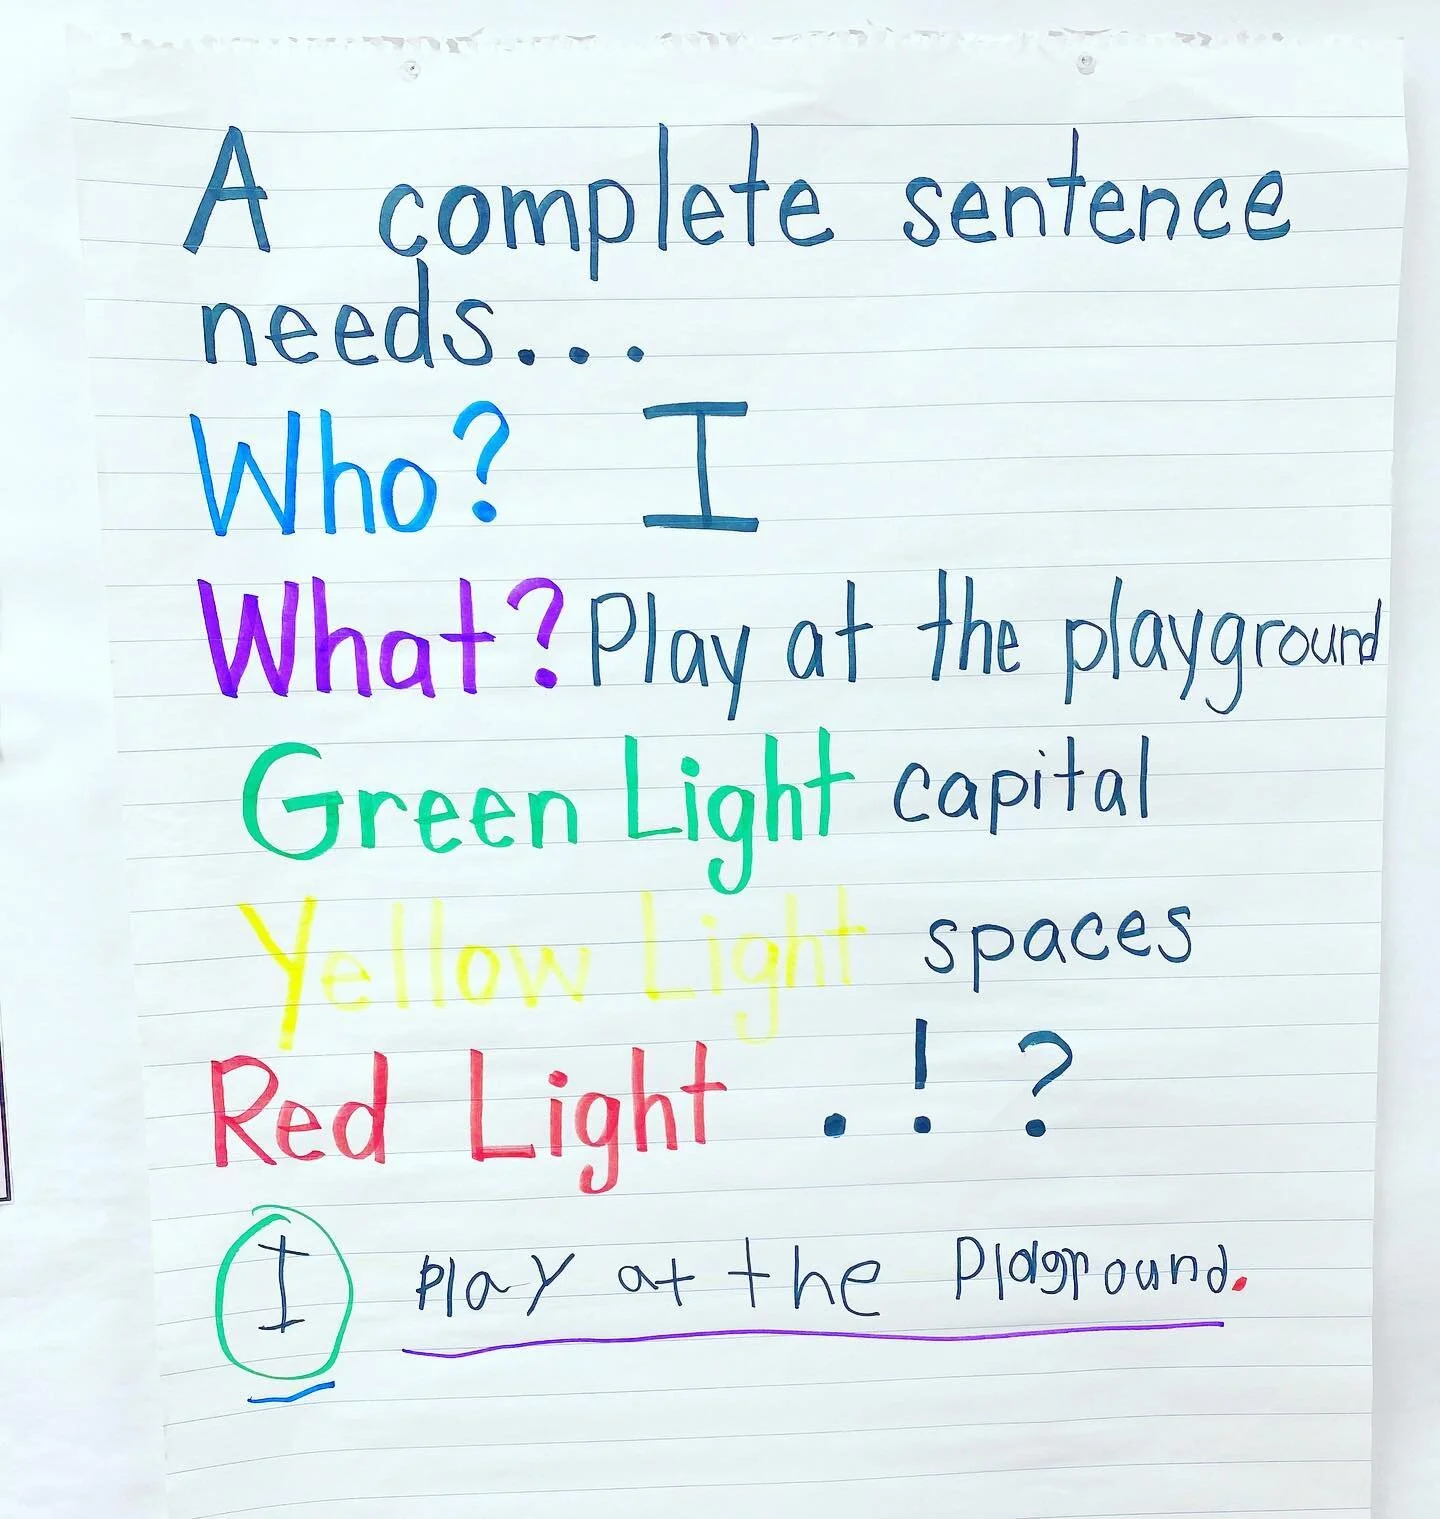 A complete sentence
needs...
Who? I
What? Play at the playground
Green Light capital
Yellow Light spaces
Red Light . ! ?
I play at the Playground.